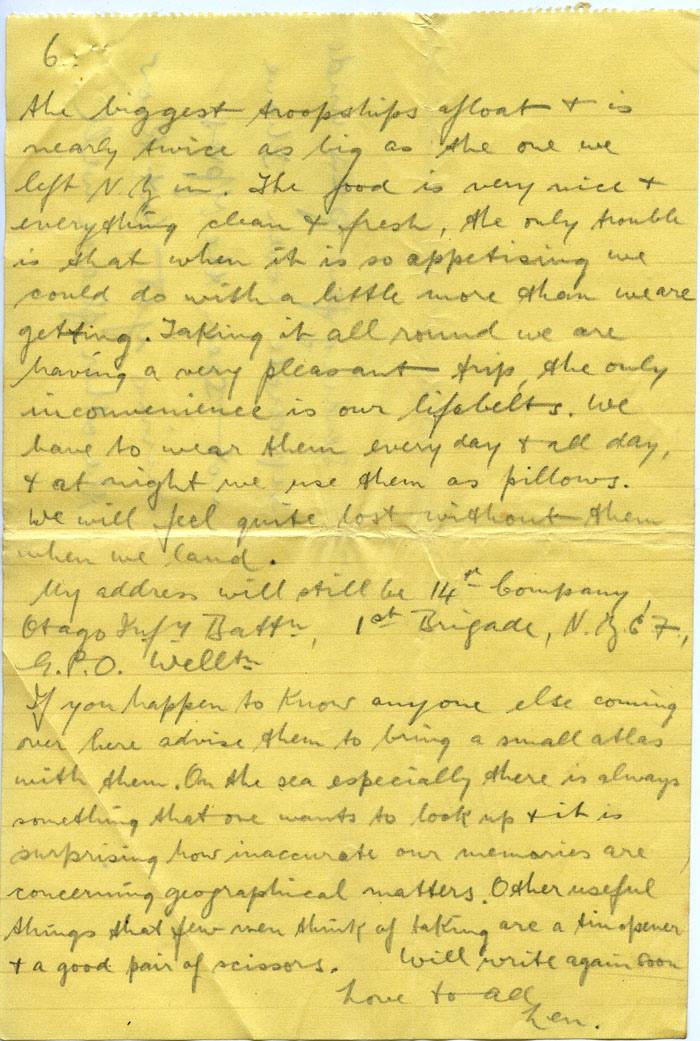 6.
the biggest troopships afloat & is
nearly twice as big as the one we
left N Z in. The food is very nice &
everything clean & fresh, the only trouble
is that when it is so appetising we
could do with a little more than we are
getting. Taking it all round we are
having a very pleasant trip, the only
inconvenience is our lifebelts. We
have to wear them every day & all day,
& at night we use them as pillows.
We will feel quite lost without them
when we land.
My address will still be 14th Company
Otago Infy Battn, 1st Brigade, N.Z.E.F,
G.P.O. Welltn
If you happen to know anyone else coming
over here advise them to bring a small atlas
with them. On the sea especially there is always
something that one wants to look up & it is
surprising how inaccurate our memories are
concerning geographical matters. Other useful
things that few men think of taking are a tin opener
& a good pair of scissors. Will write again soon
Love to all
Len.